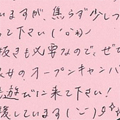 いますが 焦らず少しづ
って下さい(´▽`)
抜きも必要なので、ぜひ
女のオープンキャンパ
遊びに来て下さい!
援しています(^-^)